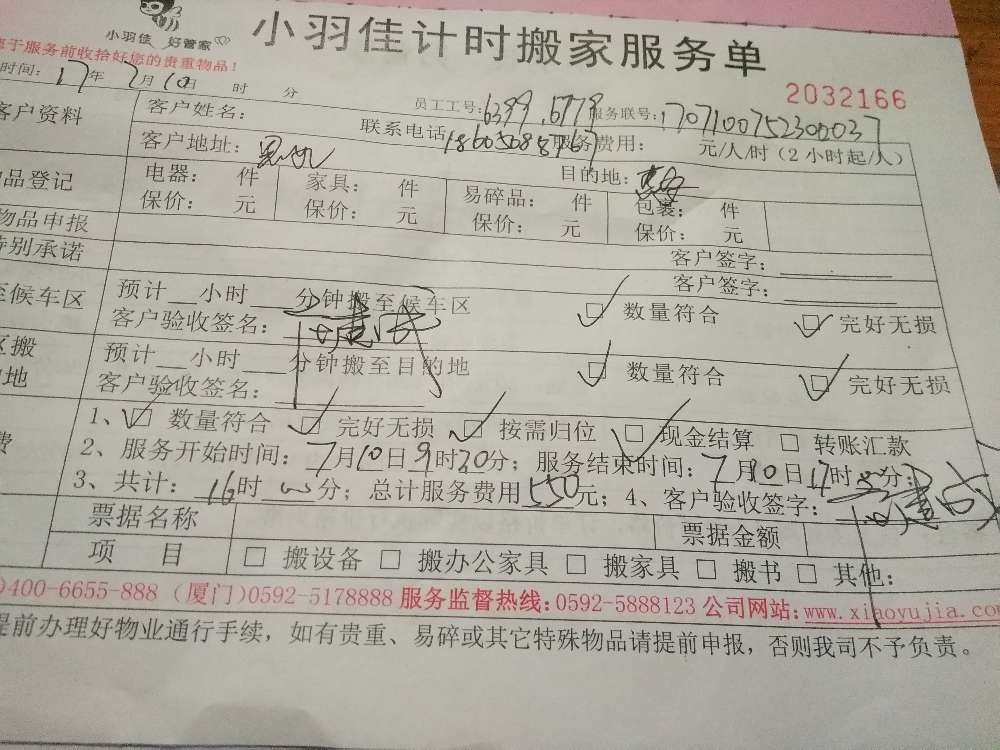 小羽佳 好管家
小羽佳计时搬家服务单
于服务前收拾好您的贵重物品!
2032166
时间: 17年 7月 10日 时 分
员工工号: 6399.6779 服务联号: 1707100752300037
客户资料 客户姓名: 联系电话 服务费用: 元/人/时(2小时起/人)
客户地址: 目的地:
品登记 电器: 件 家具: 件 易碎品: 件 包裹: 件
保价: 元 保价: 元 保价: 元 保价: 元
物品申报 客户签字:
特别承诺 客户签字:
至候车区 预计 小时 分钟搬至候车区 ☑ 数量符合 ☑ 完好无损
客户验收签名:
区搬 预计 小时 分钟搬至目的地 ☑ 数量符合 ☑ 完好无损
地 客户验收签名:
费 1、☑ 数量符合 ☑ 完好无损 ☑ 按需归位 ☑ 现金结算 □ 转账汇款
2、服务开始时间: 7月10日9时20分; 服务结束时间: 7月10日17时00分;
3、共计: 16时00分; 总计服务费用550元; 4、客户验收签字:
票据名称 票据金额
项 目 □ 搬设备 □ 搬办公家具 □ 搬家具 □ 搬书 □ 其他:
)400-6655-888 (厦门)0592-5178888 服务监督热线:0592-5888123 公司网站:www.xiaoyujia.co
提前办理好物业通行手续,如有贵重、易碎或其它特殊物品请提前申报,否则我司不予负责。